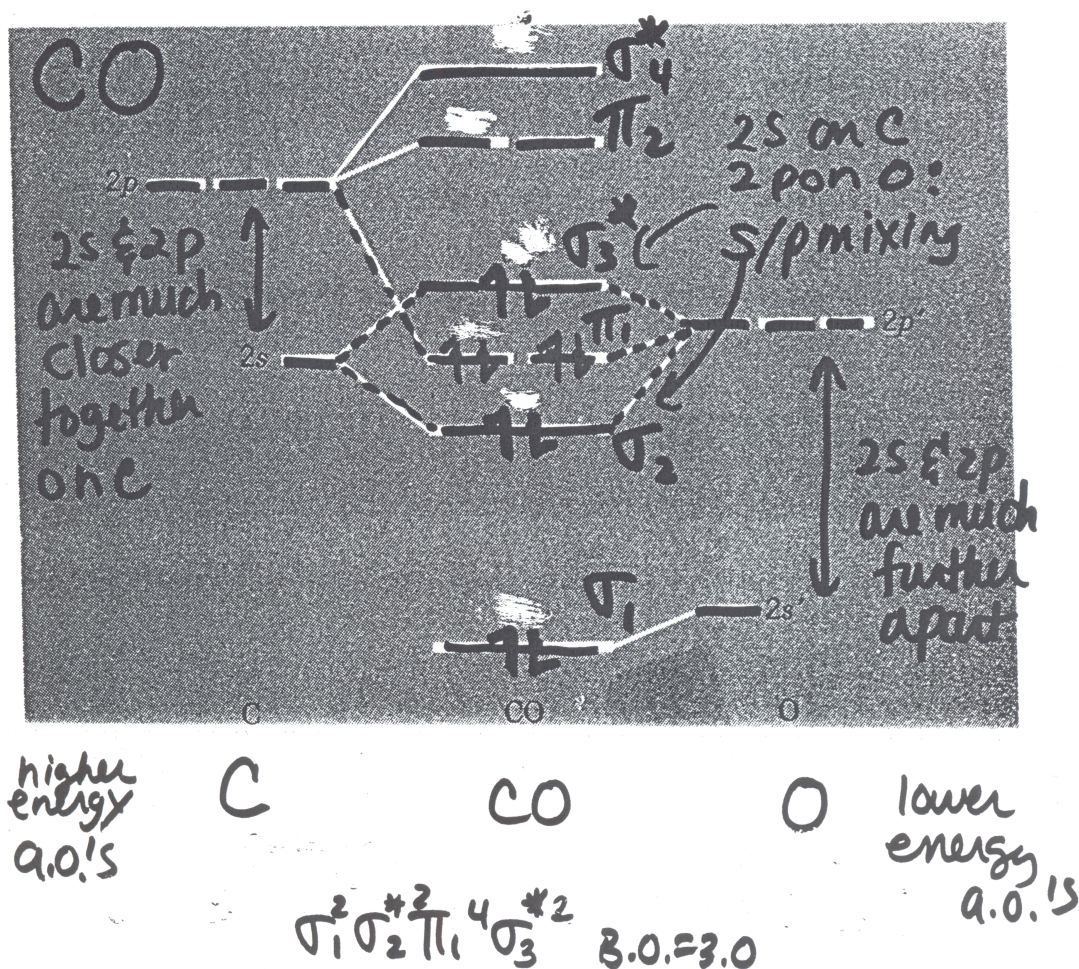 CO
σ₄*
π₂
2p
2s on C
2p on O:
s/p mixing
σ₃*
2s & 2p
are much
closer
together
on C
π₁
2p'
2s
σ₂
2s & 2p
are much
further
apart
σ₁
2s'
C
CO
O
higher
energy
a.o.'s
C
CO
O
lower
energy
a.o.'s
σ₁² σ₂*² π₁⁴ σ₃*² B.O.=3.0